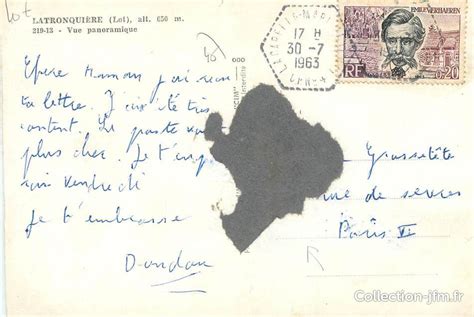 lot
LATRONQUIÈRE (Lot), alt. 650 m.
219-13 - Vue panoramique
40
17 H
30-7
1963
EMILE VERHAEREN
RF
0,20
Maman j'ai
ta lettre. J'ai été très
content. La poste
plus cher. Je t'
vendredi
Je t'embrasse
Dandan
Grossetête
rue de sèvres
Paris VI
Interdite
Collection-jfm.fr